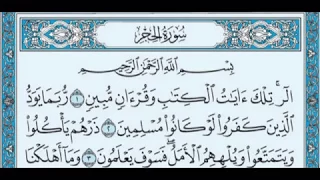 سُورَةُ الحِجْرِ
بِسْمِ اللَّهِ الرَّحْمَٰنِ الرَّحِيمِ
الٓر ۚ تِلْكَ ءَايَٰتُ الْكِتَٰبِ وَقُرْءَانٍ مُّبِينٍ ١ رُّبَمَا يَوَدُّ
الَّذِينَ كَفَرُوا لَوْ كَانُوا مُسْلِمِينَ ٢ ذَرْهُمْ يَأْكُلُوا
وَيَتَمَتَّعُوا وَيُلْهِهِمُ الْأَمَلُ ۖ فَسَوْفَ يَعْلَمُونَ ٣ وَمَا أَهْلَكْنَا